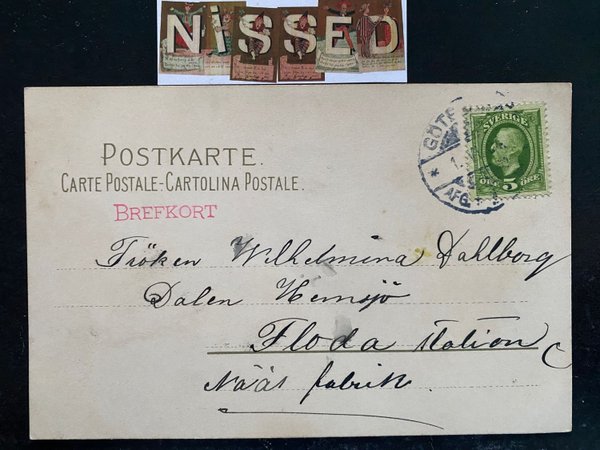 NISSED
POSTKARTE.
CARTE POSTALE-CARTOLINA POSTALE.
BREFKORT
GÖTE
1.
AFG.
SVERIGE
5 ÖRE
Fröken Wilhelmina Dahlberg
Dalen Hemsjö
Floda station
Nääs fabrik